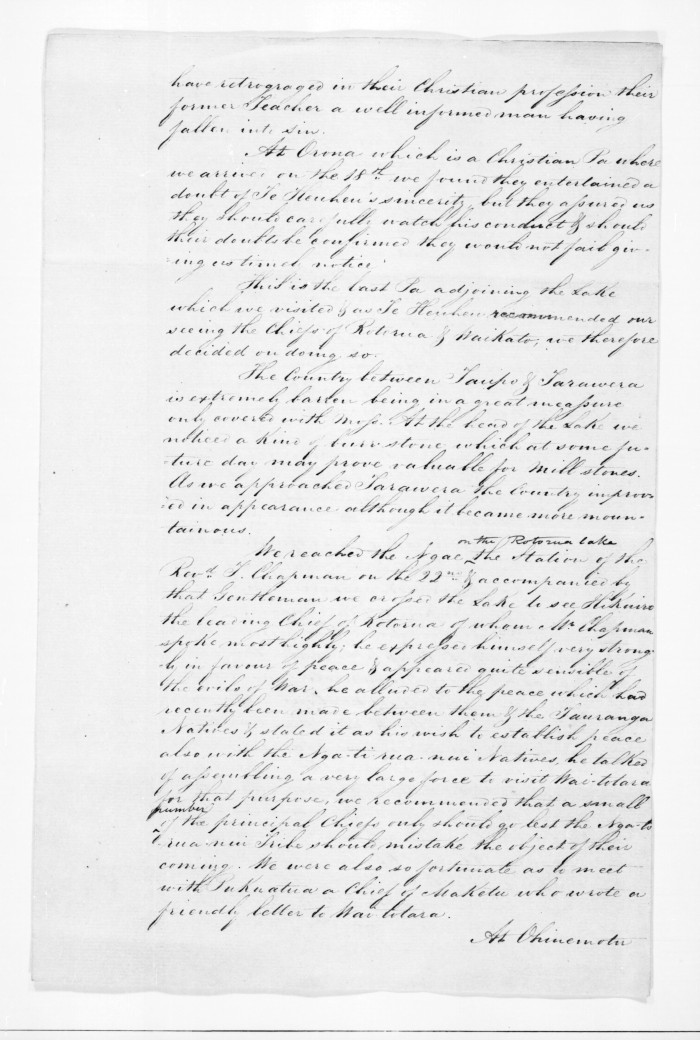 have retrograged in their Christian profession their
former Teacher a well informed man having
fallen into sin.
At Orona which is a Christian Pa where
we arrived on the 18th we found they entertained a
doubt of Te Heuheu's sincerity, but they assured us
they should carefully watch his conduct & should
their doubts be confirmed they would not fail giv-
ing us timely notice.
This is the last Pa adjoining the Lake
which we visited & as Te Heuheu recommended our
seeing the Chiefs of Rotorua & Waikato, we therefore
decided on doing so.
The Country between Taupo & Tarawera
is extremely barren being in a great measure
only covered with Moss. At the head of the Lake we
noticed a kind of burr stone which at some fu-
ture day may prove valuable for Mill stones.
As we approached Tarawera the Country improv-
ed in appearance although it became more moun-
tainous.
on the Rotorua Lake
We reached the Ngae, the Station of the
Revd. T. Chapman on the 22nd & accompanied by
that Gentleman we crossed the Lake to see Hikairo
the leading Chief of Rotorua of whom Mr Chapman
spoke most highly; he expresses himself very strong-
ly in favour of peace & appeared quite sensible of
the evils of War, he alluded to the peace which had
recently been made between them & the Tauranga
Natives & stated it as his wish to establish peace
also with the Nga-ti rua-nui Natives, he talked
of assembling a very large force to visit Wai-totara
for that purpose, we recommended that a small
number
of the principal Chiefs only should go lest the Nga-ti
rua-nui Tribe should mistake the object of their
coming. We were also so fortunate as to meet
with Pukuatua a Chief of Maketu who wrote a
friendly letter to Wai-totara.
At Ohinemotu